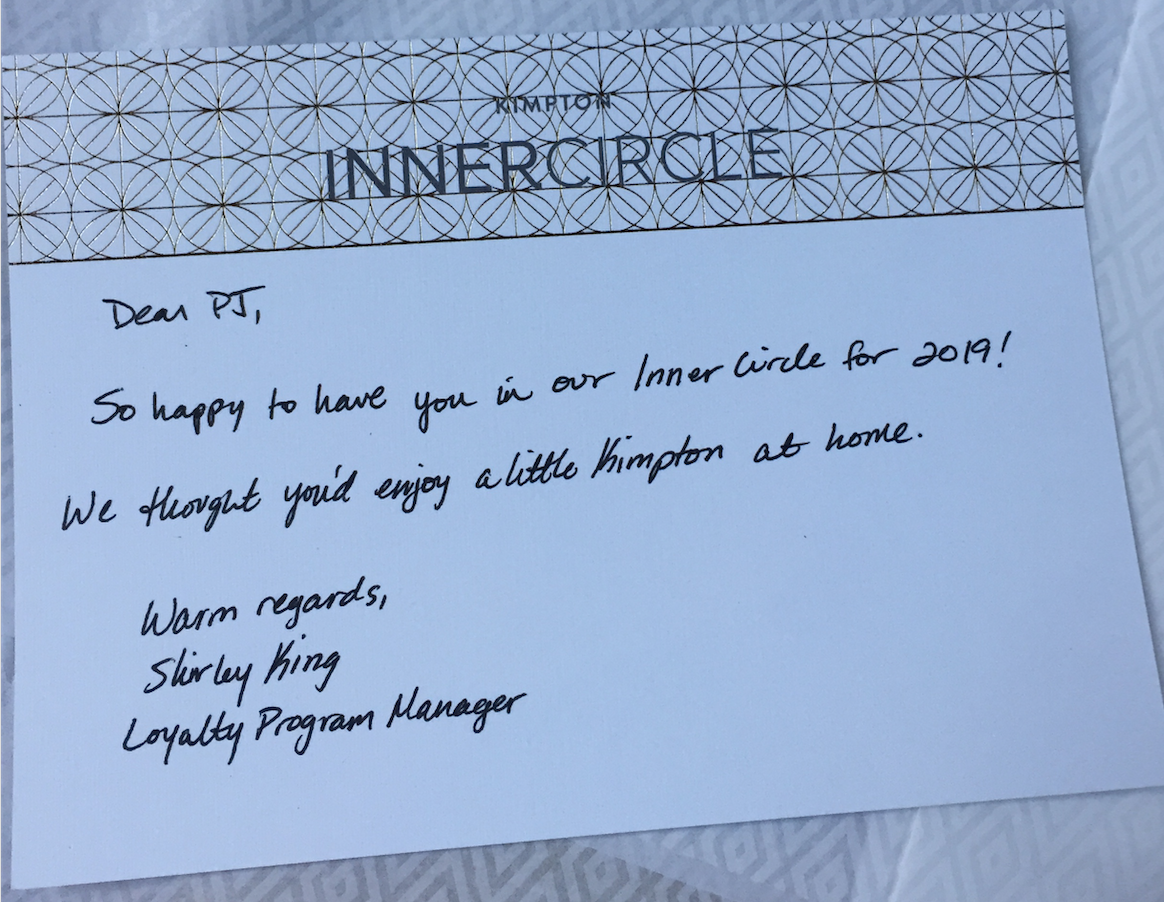 KIMPTON
INNERCIRCLE
Dear PJ,
So happy to have you in our Inner Circle for 2019!
We thought you'd enjoy a little Kimpton at home.
Warm regards,
Shirley King
Loyalty Program Manager